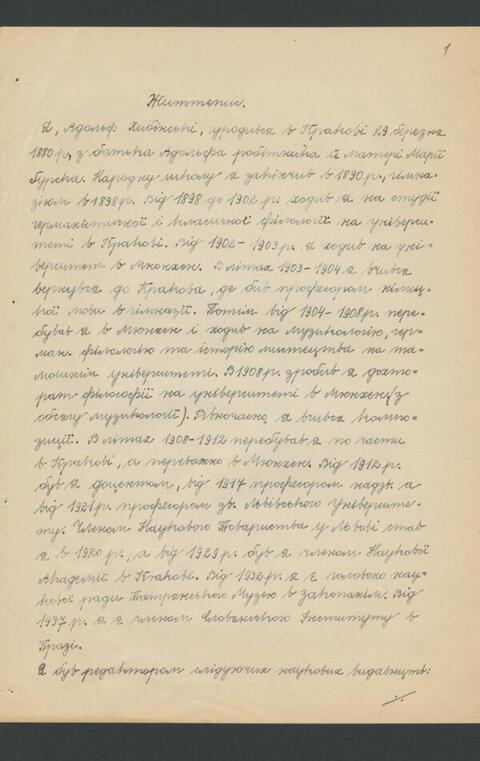 1
Життєпис.
Я, Адольф Хибінські, уродився в Кракові 29 березня
1880 р., з батька Адольфа робітника й матері Марії
Гурска. Народну школу я закінчив в 1890 р., гімна-
зіюм в 1898 р. Від 1898 до 1902 р. ходив я на студії
германістичної і класичної філології на універси-
теті в Кракові. Від 1902-1903 р. я ходив на уні-
верситет в Мюнхен. В літах 1903-1904 я
вернувся до Кракова, де був професором німец-
кої мови в гімназії. Потім від 1904-1908 р. пере-
бував я в Мюнхен і ходив на музикологію, гер-
ман. філологію та історію мистецтва на та-
мошнім університеті. В 1908 р. зробив я докто-
рат філософії на університеті в Мюнхені (з
обсягу музикології). Рівночасно я вчився компо-
зиції. В літах 1908-1912 перебував я по части
в Кракові, а переважно в Мюнхен. Від 1912 р.
був я доцентом, від 1917 професором надзв. а
від 1921 р. професором зв. Львівського Університе-
ту. Членом Наукового Товариства у Львові став
я в 1920 р., а від 1929 р. був я членом Наукової
Академії в Кракові. Від 1932 р. я є головою нау-
кової ради Татранського Музею в Закопанім. Від
1937 р. я є членом Словянського Інституту в
Празі.
Я був редактором слідуючих наукових видавництв:
./.